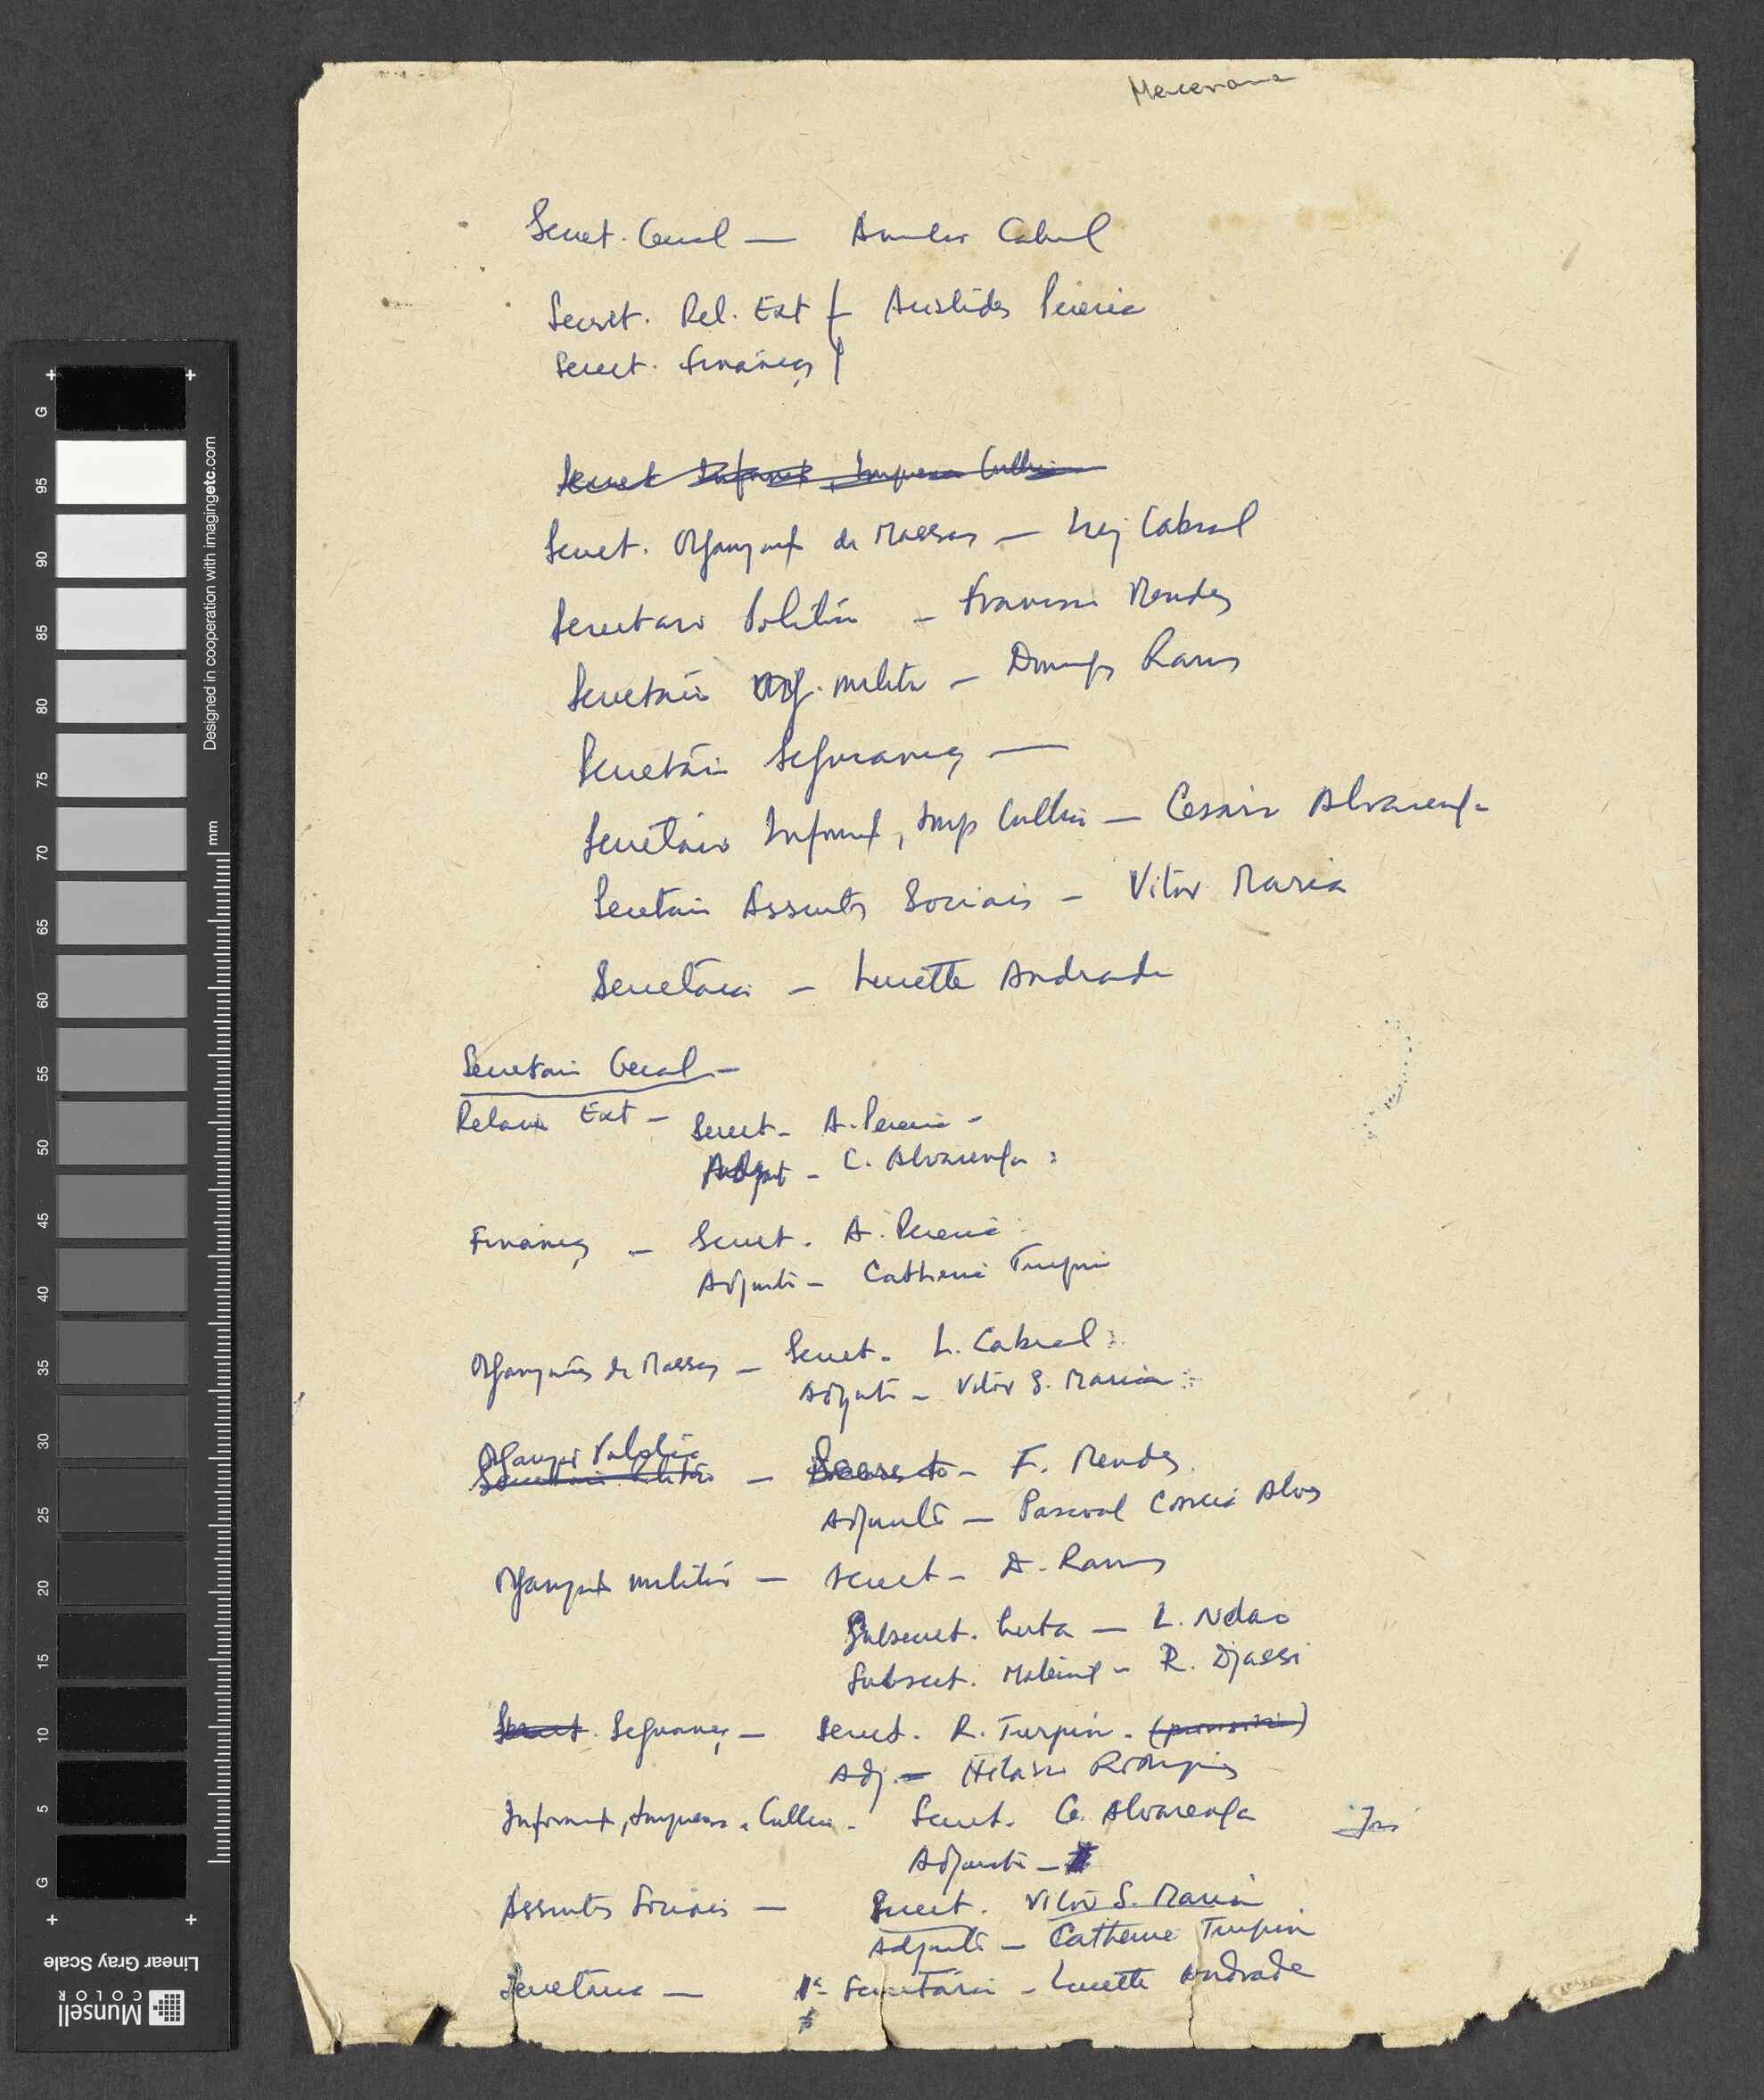 Secret. Geral — Amilcar Cabral
Secret. Rel. Ext { Aristides Pereira
Secret. Finanças }
Secret Informaç, Imprensa Cultura
Secret. Organizaç de Massas — Luiz Cabral
Secretario Politico — Francisco Mendes
Secretário Org. militar — Domingos Ramos
Secretário Segurança —
Secretário Informaç, Imp Cultura — Cesário Alvarenga
Secretário Assuntos Sociais — Vitor Maria
Secretária — Lucette Andrade
Secretário Geral —
Relações Ext — Secret — A. Pereira —
Adjunt — C. Alvarenga
Finanças — Secret. A. Pereira
Adjunto — Catherine Turpin
Organizações de Massas — Secret. L. Cabral
Adjunto — Vitor S. Maria
Organiz Politica
Secretario Politico — F. Mendes
Adjunto — Pascoal Correia Alves
Organizaç militar — Secret — D. Ramos
Subsecret. Luta — L. Ndao
Subsecret. Material — R. Djassi
Secret. Segurança — Secret. R. Turpin. (provisório)
Adj. — Hilário Rodrigues
Informaç, Imprensa e Cultura. Secret. C. Alvarenga José
Adjunto —
Assuntos Sociais — Secret. Vitor S. Maria
Adjunto — Catherine Turpin
Secretaria — 1ª Secretária — Lucette Andrade
G
95
90
85
80
75
70
65
60
55
50
45
40
35
30
25
20
15
10
5
G
mm
Designed in cooperation with imagingetc.com
Linear Gray Scale
Munsell
COLOR